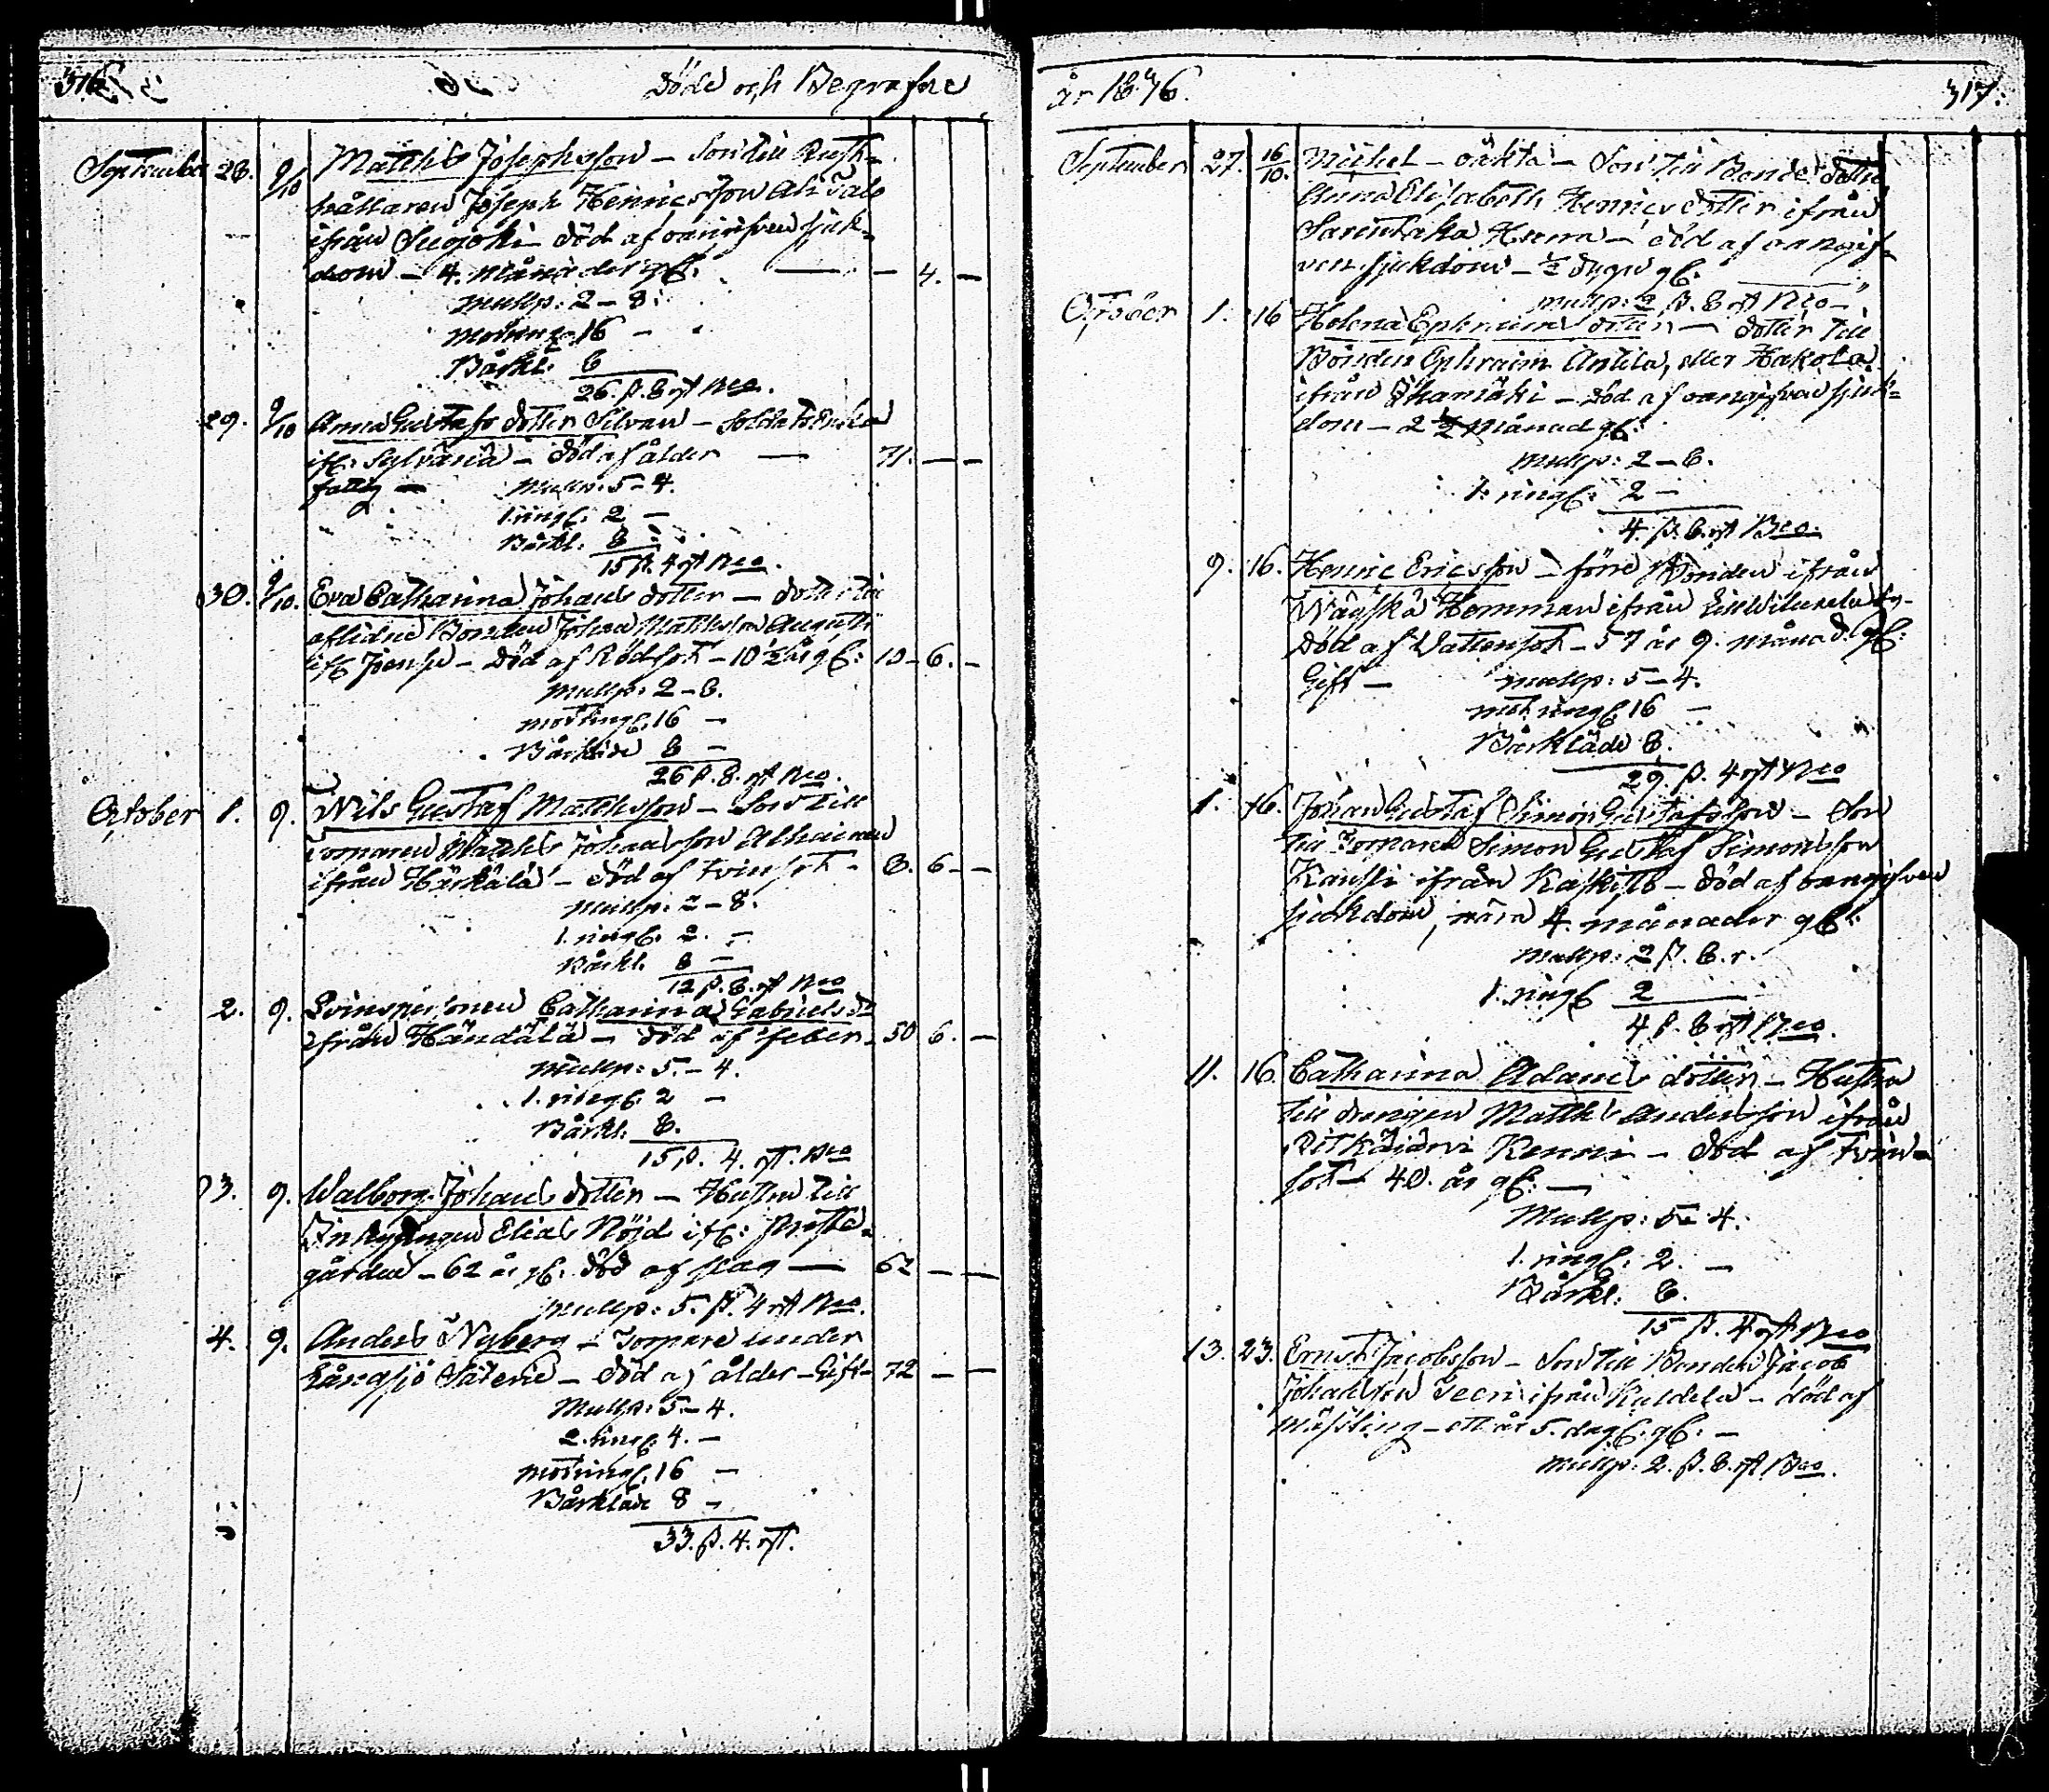 316.
Döde och Begrafne
September 28. 9/10 Matths Josephsson – Son till Rust-
hållaren Joseph Henricsson Ali
ifrån – död af oangifven sjuk-
dom – 4. månader gl: – 4. –
Mullp: 2 – 8.
16 –
Bårkl: 8
26. ß. 8 rst Bco.
29. 9/10 Anna Gustafs dotter Silvan – Soldat Enka
ifr: Sylvänä – död af ålder – 71. – –
fattig – Mullp: 5 – 4.
1. ringg: 2 –
Bårkl: 8
15 ß. 4 rst Bco.
30. 9/10. Eva Catharina Johans dotter – dotter till
aflidne Bonden Johan Mattsson
ifr Joensu – död af Rödsot – 10 ½ år gl: 10 – 6. –
Mullp: 2 – 8.
16 –
Bårkläde 8 –
26 ß. 8. rst Bco.
October 1. 9. Nils Gustaf Matthsson – Son till
Torparen Matths Johansson
ifrån Härkälä – död af tvinsot – 8. 6 – –
Mullp: 2 – 8.
1. ringg: 2. –
Bårkl. 8 –
12 ß. 8. rst Bco
2. 9. Qvinspersonen Catharina Gabriels dr
ifrån Händälä – död af feber – 50 6. –
Mullp: 5. – 4.
1. ringg: 2 –
Bårkl: 8.
15 ß. 4. rst. Bco
3. 9. Walborg Johans dotter – Hustru till
Inhysingen Elias Nöjd ifr: Prest-
gården – 62 år gl. död af slag – 62 – –
Mullp: 5. ß. 4 rst Bco.
4. 9. Anders Nyberg – Torpare under
Långsjö Säterie – död af ålder – Gift – 72 – –
Mullp: 5 – 4.
2. ringg: 4. –
16 –
Bårkläde 8 –
33. ß. 4. rst.
år 1846.
317.
September 27. 16/10. Michel – oäkta – Son till Bonde dottren
Anna Elisabeth Henrics dotter ifrån
– död af oangif-
ven sjukdom – ½ dygn gl.
Mullp: 2 ß. 8 rst Bco –
October 1. 16 Helena Ephraims dotter – dotter till
Bonden Ephraim Antila, eller Hakola
ifrån – död af oangifven sjuk-
dom – 2 ½ månad gl:
Mullp: 2 – 8.
1. ringg: 2 –
4. ß. 8. rst Bco.
9. 16. Henric Ericsson – förre Bonden ifrån
Hemman ifrån
död af Vattensot – 57 år 9. månad. gl:
Gift – Mullp: 5 – 4.
16 –
Bårkläde 8.
29. ß. 4 rst Bco
1. 16. Johan Gustaf Simon Gustafsson – Son
till Torparen Simon Gustaf Simonsson
ifrån – död af oangifven
sjukdom, nära 4. månader gl:
Mullp: 2 ß. 8. r.
1. ringg 2
4 ß. 8 rst Bco.
11. 16. Catharina Adams dotter – Hustru
till drängen Matths Andersson ifrån
Pitkäjärvi – död af tvin-
sot – 40. år gl: –
Mullp: 5 – 4.
1. ringg: 2. –
Bårkl: 8.
15 ß. 4 rst Bco
13. 23. Ernst Jacobsson – Son till Bonden Jacob
Johansson ifrån – död af
mässling – ett år 5. dag. gl: –
Mullp: 2. ß. 8. rst Bco.